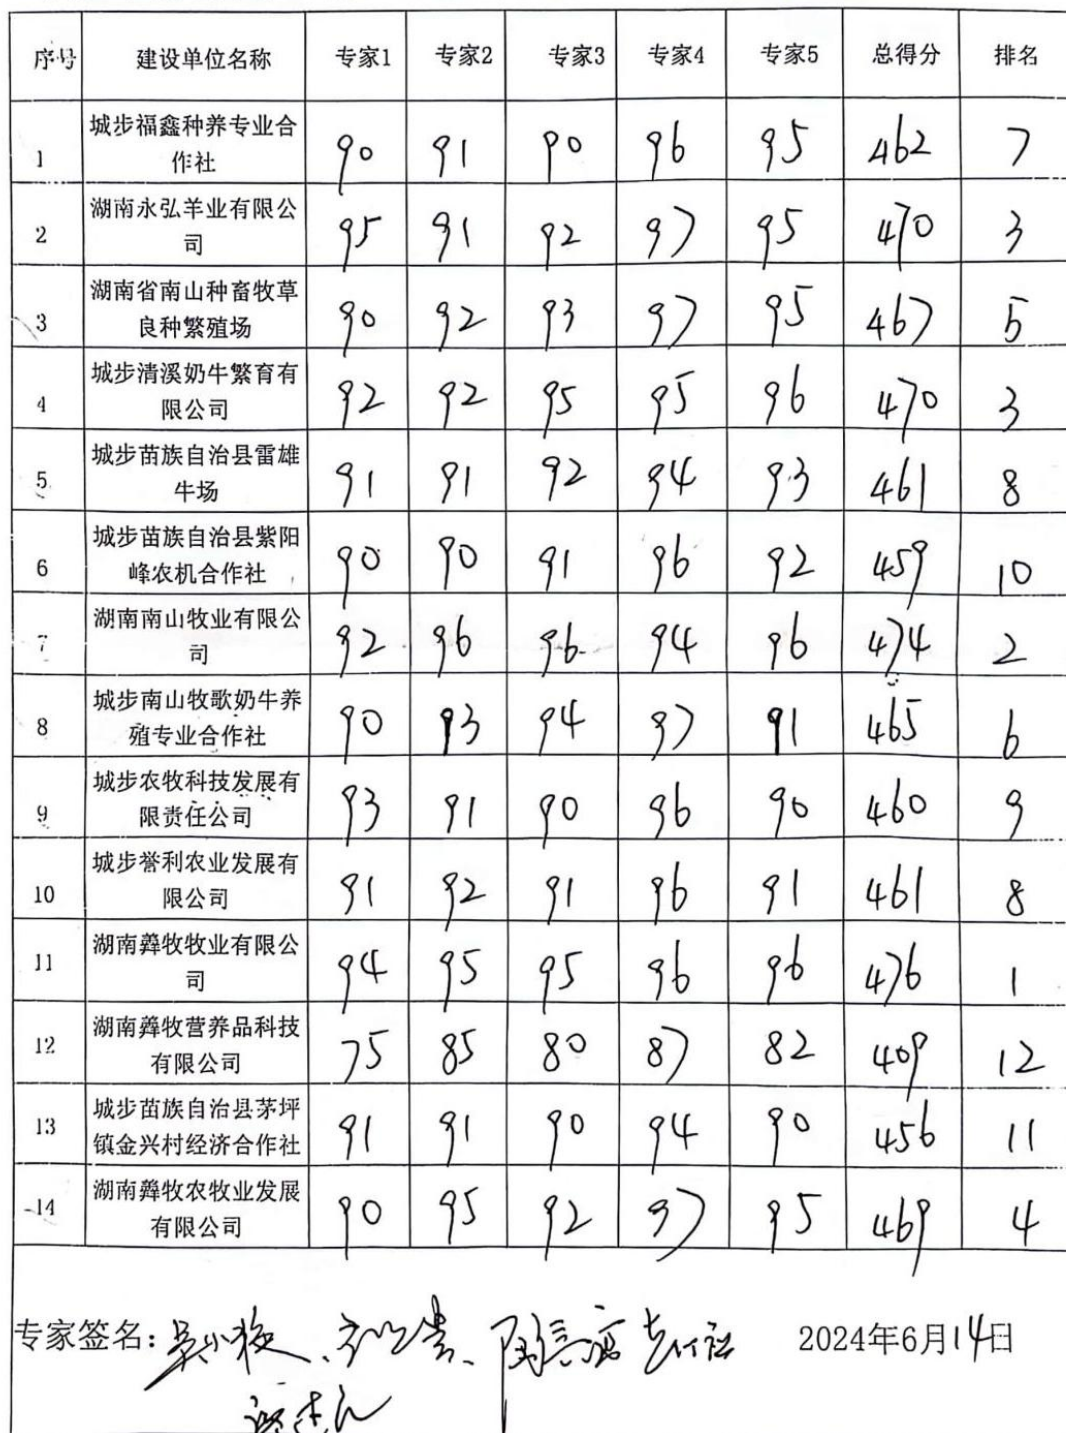 序号 建设单位名称 专家1 专家2 专家3 专家4 专家5 总得分 排名
城步福鑫种养专业合
1 作社 90 91 90 96 95 462 7
湖南永弘羊业有限公
2 司 95 91 92 97 95 470 3
湖南省南山种畜牧草
3 良种繁殖场 90 92 93 97 95 467 5
城步清溪奶牛繁育有
4 限公司 92 92 95 95 96 470 3
城步苗族自治县雷雄
5 牛场 91 91 92 94 93 461 8
城步苗族自治县紫阳
6 峰农机合作社 90 90 91 96 92 459 10
湖南南山牧业有限公
7 司 92 96 96 94 96 474 2
城步南山牧歌奶牛养
8 殖专业合作社 90 93 94 97 91 465 6
城步农牧科技发展有
9 限责任公司 93 91 90 96 90 460 9
城步誉利农业发展有
10 限公司 91 92 91 96 91 461 8
湖南羴牧牧业有限公
11 司 94 95 95 96 96 476 1
湖南羴牧营养品科技
12 有限公司 75 85 80 87 82 409 12
城步苗族自治县茅坪
13 镇金兴村经济合作社 91 91 90 94 90 456 11
湖南羴牧农牧业发展
14 有限公司 90 95 92 97 95 469 4
专家签名: 2024年6月14日